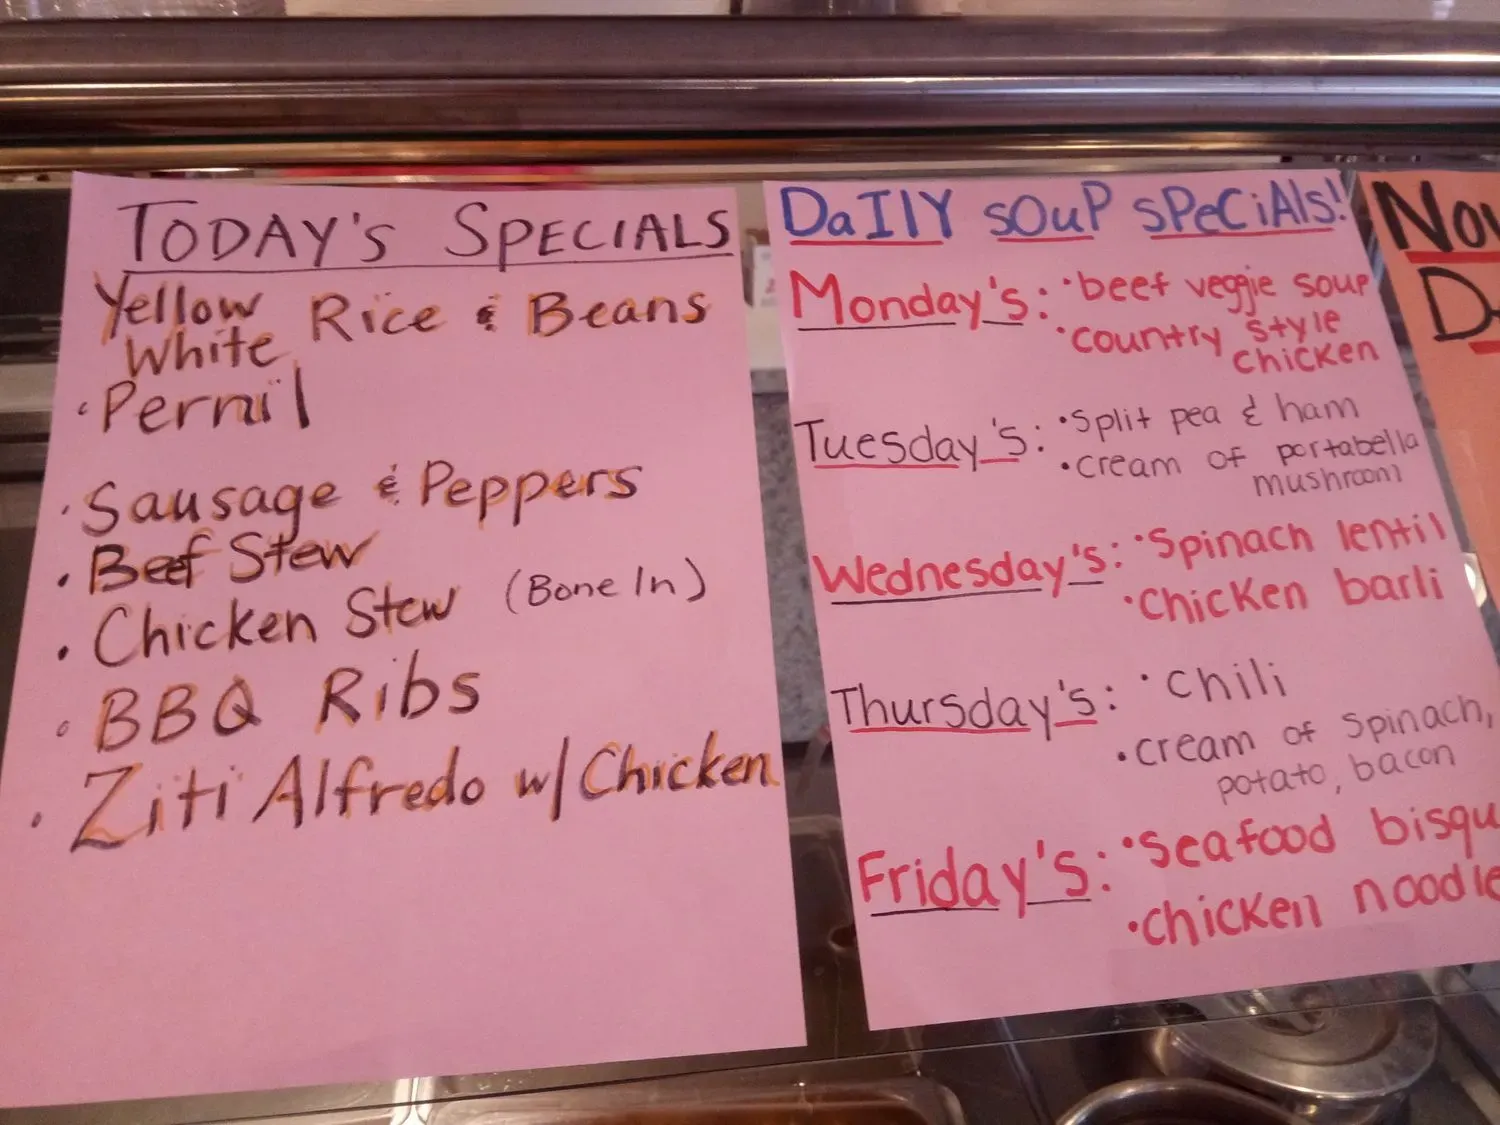 TODAY's SPECIALS
Yellow
White Rice & Beans
• Pernil
• Sausage & Peppers
• Beef Stew
• Chicken Stew (Bone In)
• BBQ Ribs
• Ziti Alfredo w/ Chicken
DaIlY sOuP sPeCiAls!
Monday's: • beef veggie soup
• country style
chicken
Tuesday's: • Split pea & ham
• cream of portabella
mushroom
Wednesday's: • Spinach lentil
• chicken barli
Thursday's: • chili
• cream of spinach,
potato, bacon
Friday's: • seafood bisqu
• chicken noodle